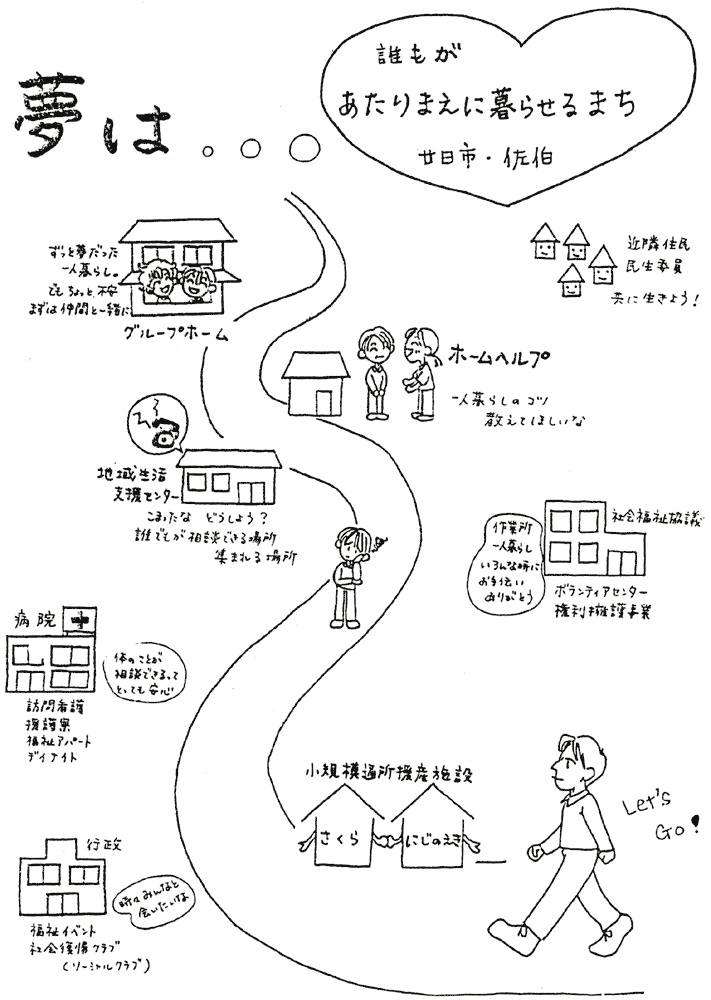 夢は...
誰もが
あたりまえに暮らせるまち
廿日市・佐伯
ずっと夢だった
一人暮らし。
でもちょっと不安
まずは仲間と一緒に
グループホーム
近隣住民
民生委員
共に生きよう!
ホームヘルプ
一人暮らしのコツ
教えてほしいな
地域生活
支援センター
こまったな どうしよう?
誰でもが相談できる場所
集まれる場所
作業所
一人暮らし
いろんな時に
お手伝い
ありがとう
社会福祉協議
ボランティアセンター
権利擁護事業
病院
体のことが
相談できるって
とっても安心
訪問看護
援護寮
福祉アパート
デイナイト
小規模通所授産施設
さくら
にじのえき
Let's
Go!
行政
時々みんなと
会いたいな
福祉イベント
社会復帰クラブ
(ソーシャルクラブ)